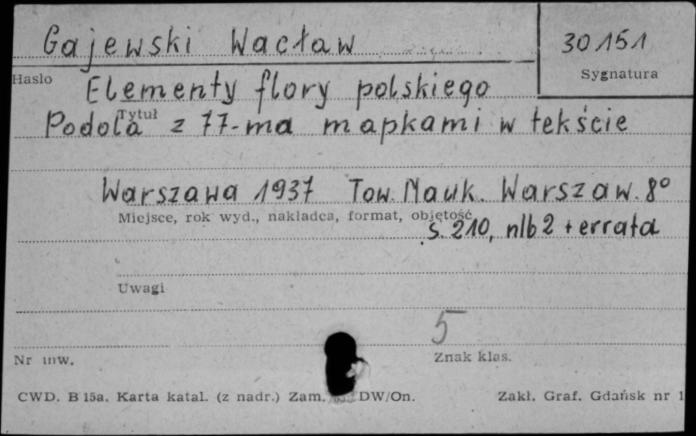 Gajewski Wacław 30151
Hasło Sygnatura
Elementy flory polskiego
Tytuł
Podola z 77-ma mapkami w tekście
Warszawa 1937 Tow. Nauk. Warszaw. 8°
Miejsce, rok wyd., nakładca, format, objętość
s. 210, nlb 2 + errata
Uwagi
5
Nr inw. Znak klas.
CWD. B 15a. Karta katal. (z nadr.) Zam. DW/On. Zakł. Graf. Gdańsk nr 1